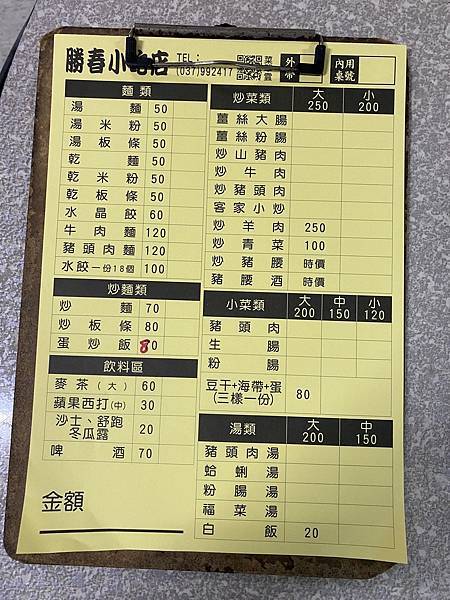 勝春小吃店 TEL： 外帶 內用桌號
(037)992417
麵類
湯麵 50
湯米粉 50
湯板條 50
乾麵 50
乾米粉 50
乾板條 50
水晶餃 60
牛肉麵 120
豬頭肉麵 120
水餃一份18個 100
炒麵類
炒麵 70
炒板條 80
蛋炒飯 80
飲料區
麥茶(大) 60
蘋果西打(中) 30
沙士、舒跑
冬瓜露 20
啤酒 70
金額
炒菜類 大250 小200
薑絲大腸
薑絲粉腸
炒山豬肉
炒牛肉
炒豬頭肉
客家小炒
炒羊肉 250
炒青菜 100
炒豬腰 時價
豬腰酒 時價
小菜類 大200 中150 小120
豬頭肉
生腸
粉腸
豆干+海帶+蛋
(三樣一份) 80
湯類 大200 中150
豬頭肉湯
蛤蜊湯
粉腸湯
福菜湯
白飯 20